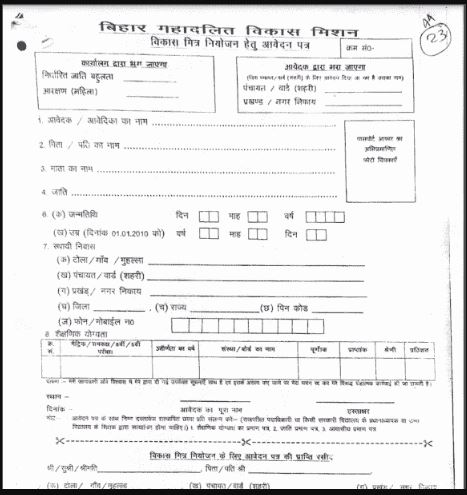 बिहार महादलित विकास मिशन
विकास मित्र नियोजन हेतु आवेदन पत्र
क्रम सं०-
23
कार्यालय द्वारा भरा जाएगा
निर्धारित जाति बहुलता
आरक्षण (महिला)
आवेदक द्वारा भरा जाएगा
पंचायत / वार्ड (शहरी)
प्रखण्ड / नगर निकाय
1. आवेदक / आवेदिका का नाम
2. पिता / पति का नाम
3. माता का नाम
4. जाति
पासपोर्ट आकार का
फोटो चिपकाएँ
6. (क) जन्मतिथि दिन माह वर्ष
(ख) उम्र (दिनांक 01.01.2010 को) वर्ष माह दिन
7. स्थायी निवास
(क) टोला/गाँव /मुहल्ला
(ख) पंचायत/वार्ड (शहरी)
(ग) प्रखंड/ नगर निकाय
(घ) जिला (च) राज्य (छ) पिन कोड
(ज) फोन/मोबाईल न0
8. शैक्षणिक योग्यता
क. सं. परीक्षा उत्तीर्णता का वर्ष संस्था/बोर्ड का नाम पूर्णांक प्राप्तांक श्रेणी प्रतिशत
स्थान -
दिनांक - आवेदक का पूरा नाम हस्ताक्षर
विकास मित्र नियोजन के लिए आवेदन पत्र की प्राप्ति रसीद
श्री/सुश्री/श्रीमति पिता/पति श्री
(क) टोला/ गाँव/मुहल्ला (ख) पंचायत/वार्ड (शहरी) (ग) प्रखंड/ नगर निकाय